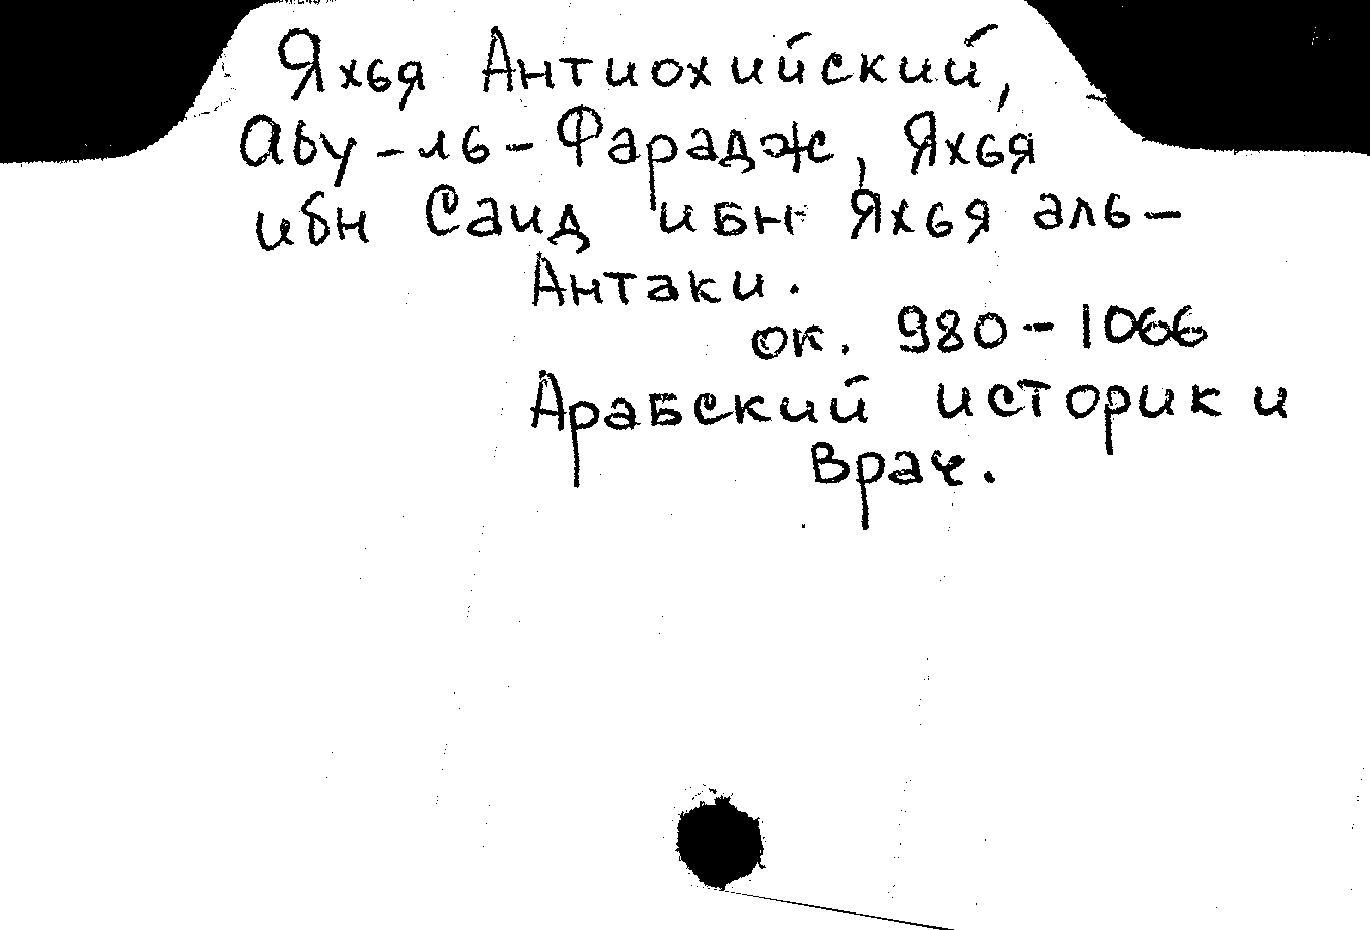 Яхья Антиохийский,
Абу-ль-Фарадж, Яхья
ибн Саид ибн Яхья аль-
Антаки.
ок. 980-1066
Арабский историк и
врач.